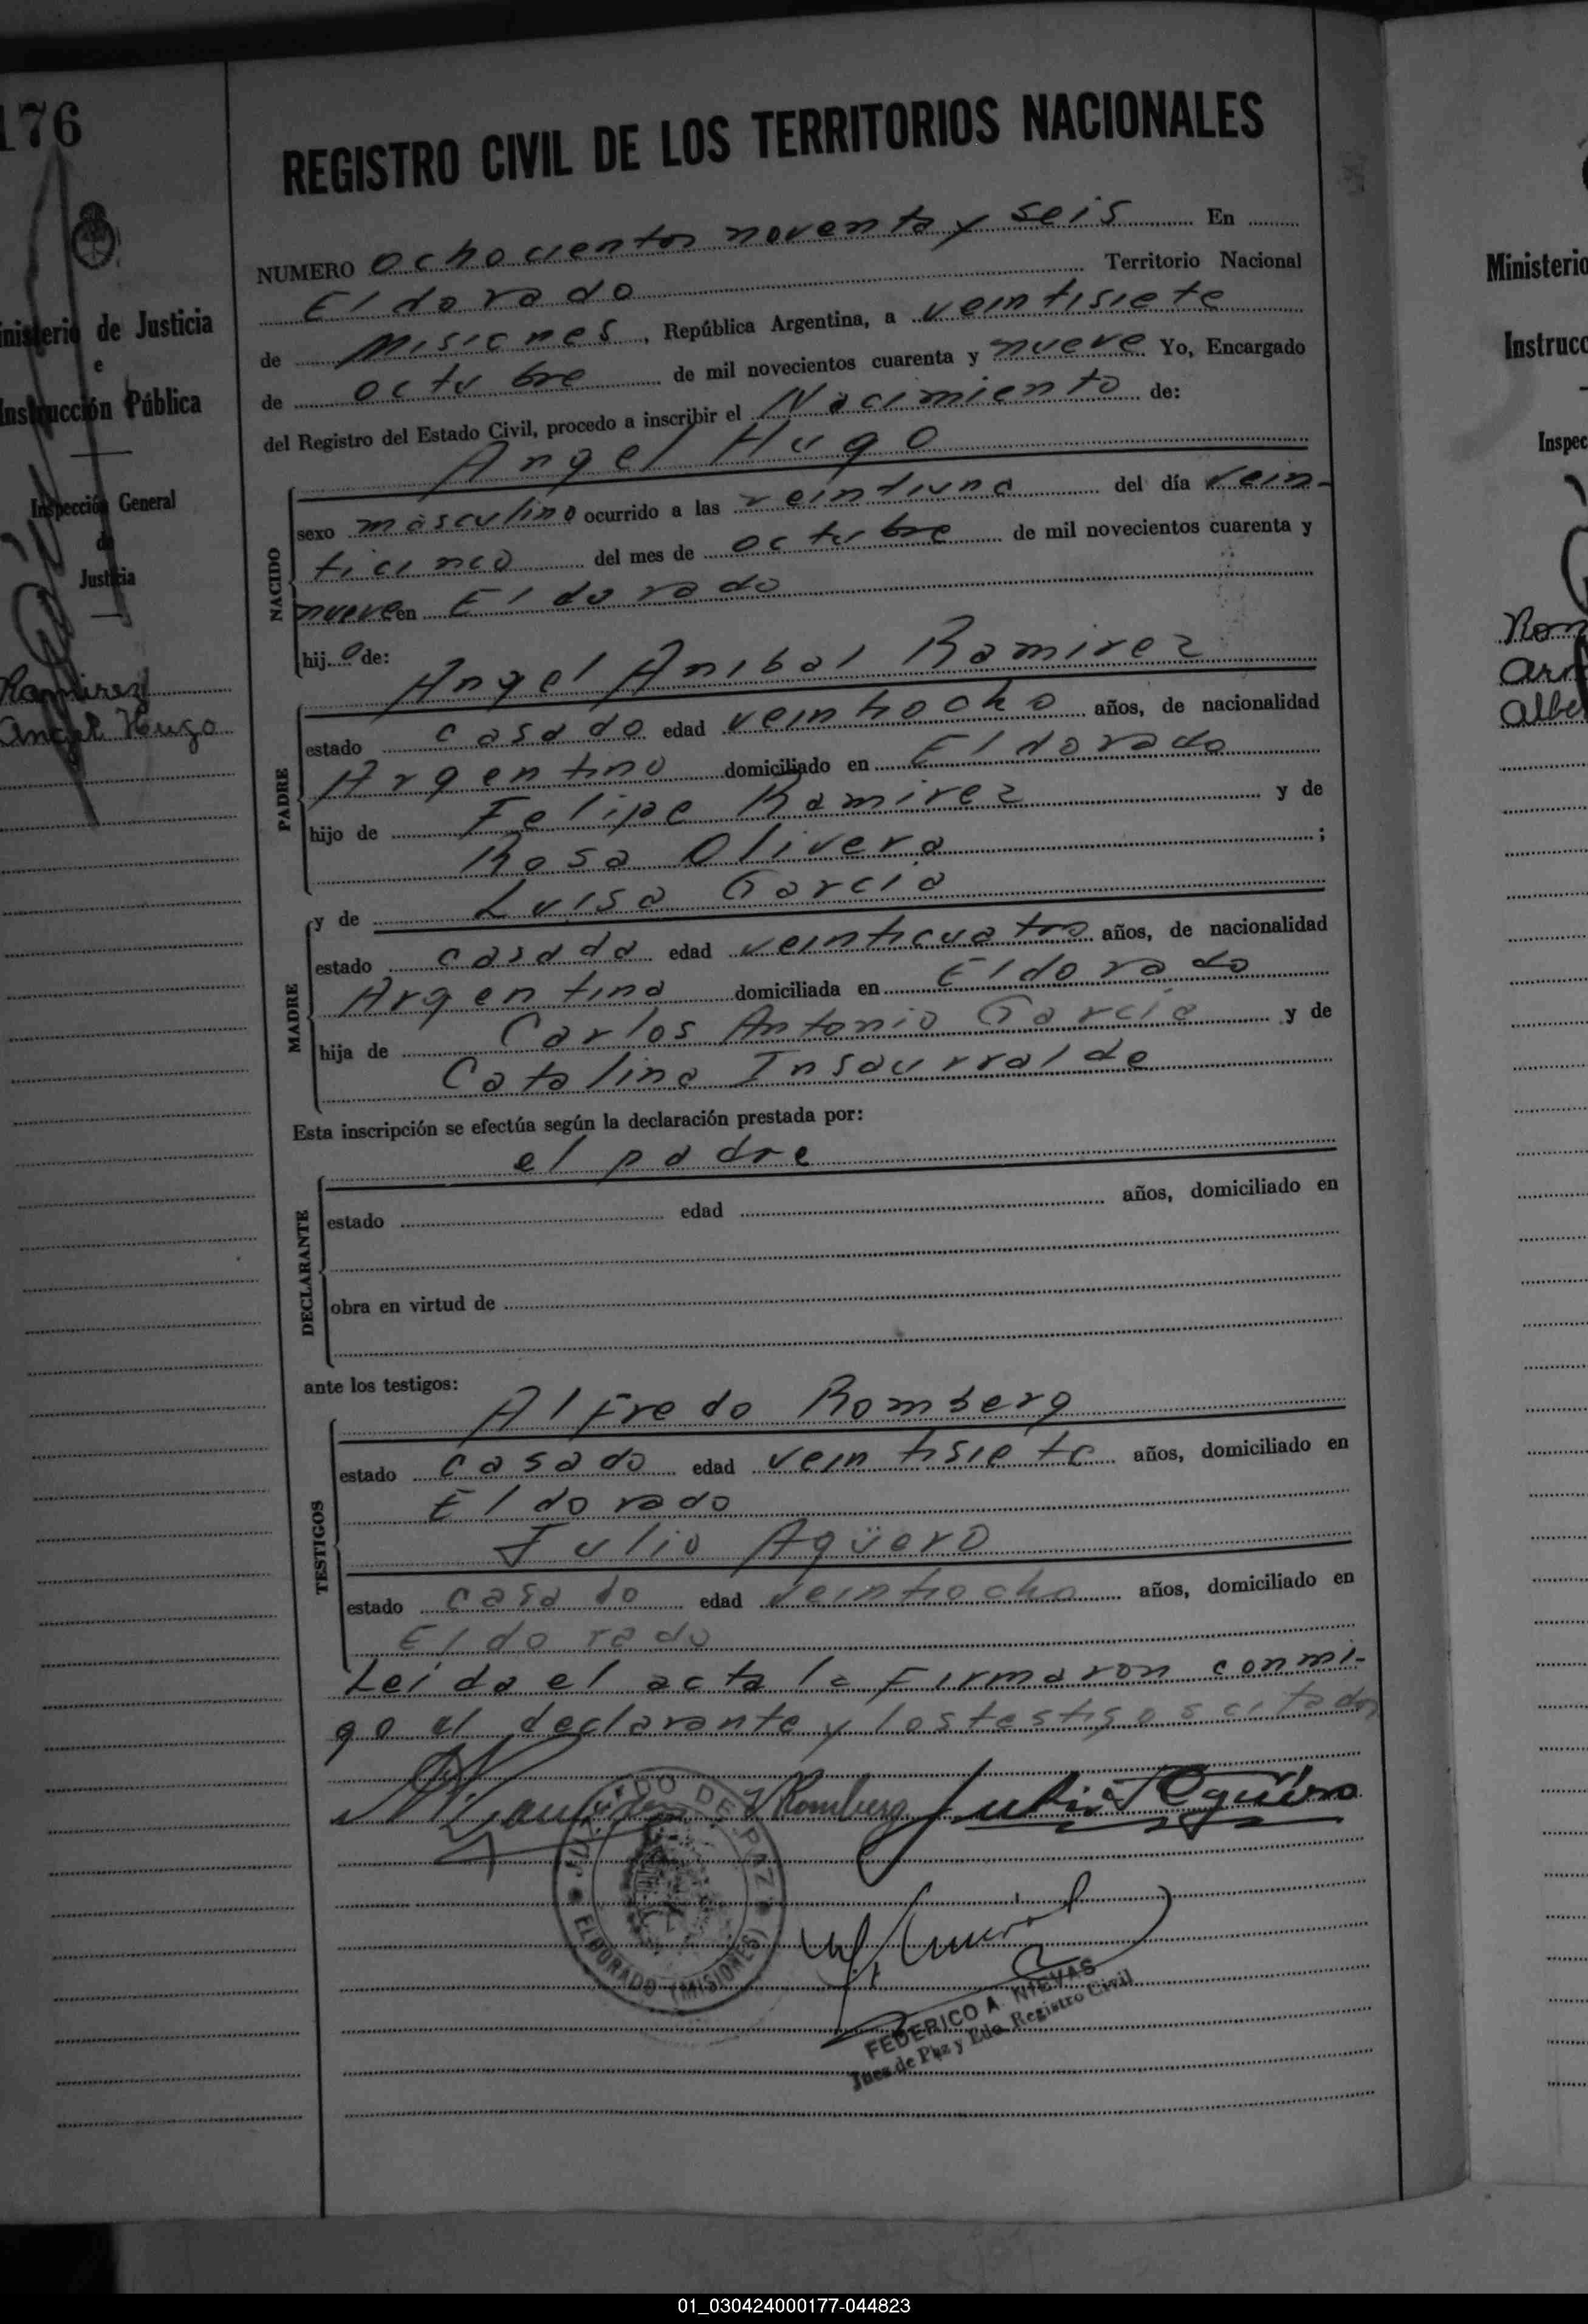 176
REGISTRO CIVIL DE LOS TERRITORIOS NACIONALES
NUMERO ochocientos noventa y seis En
Eldorado Territorio Nacional
de Misiones, República Argentina, a veintisiete
de octubre de mil novecientos cuarenta y nueve Yo, Encargado
del Registro del Estado Civil, procedo a inscribir el Nacimiento de:
Angel Hugo
NACIDO
sexo masculino ocurrido a las veintiuna del día vein-
ticinco del mes de octubre de mil novecientos cuarenta y
nueve en Eldorado
hijo de:
Angel Anibal Ramirez
PADRE
estado casado edad veintiocho años, de nacionalidad
Argentino domiciliado en Eldorado
hijo de Felipe Ramirez y de
Rosa Olivera ;
y de Luisa Garcia
MADRE
estado casada edad veinticuatro años, de nacionalidad
Argentina domiciliada en Eldorado
hija de Carlos Antonio Garcia y de
Catalina Insaurralde
Esta inscripción se efectúa según la declaración prestada por:
el padre
DECLARANTE
estado edad años, domiciliado en
obra en virtud de
ante los testigos:
Alfredo Romberg
TESTIGOS
estado casado edad veintisiete años, domiciliado en
Eldorado
Julio Agüero
estado casado edad veintiocho años, domiciliado en
Eldorado
Leida el acta la firmaron conmi-
go el declarante y los testigos citados
Romberg Julio Agüero
JUZGADO DE PAZ
ELDORADO (MISIONES)
FEDERICO A. NIEVAS
Juez de Paz y Edo. Registro Civil
Ministerio de Justicia
e
Instrucción Pública
Inspección General
de
Justicia
Ramirez
Angel Hugo
Ministerio
Instrucc
Inspec
Rom
Arn
Albe
01_030424000177-044823